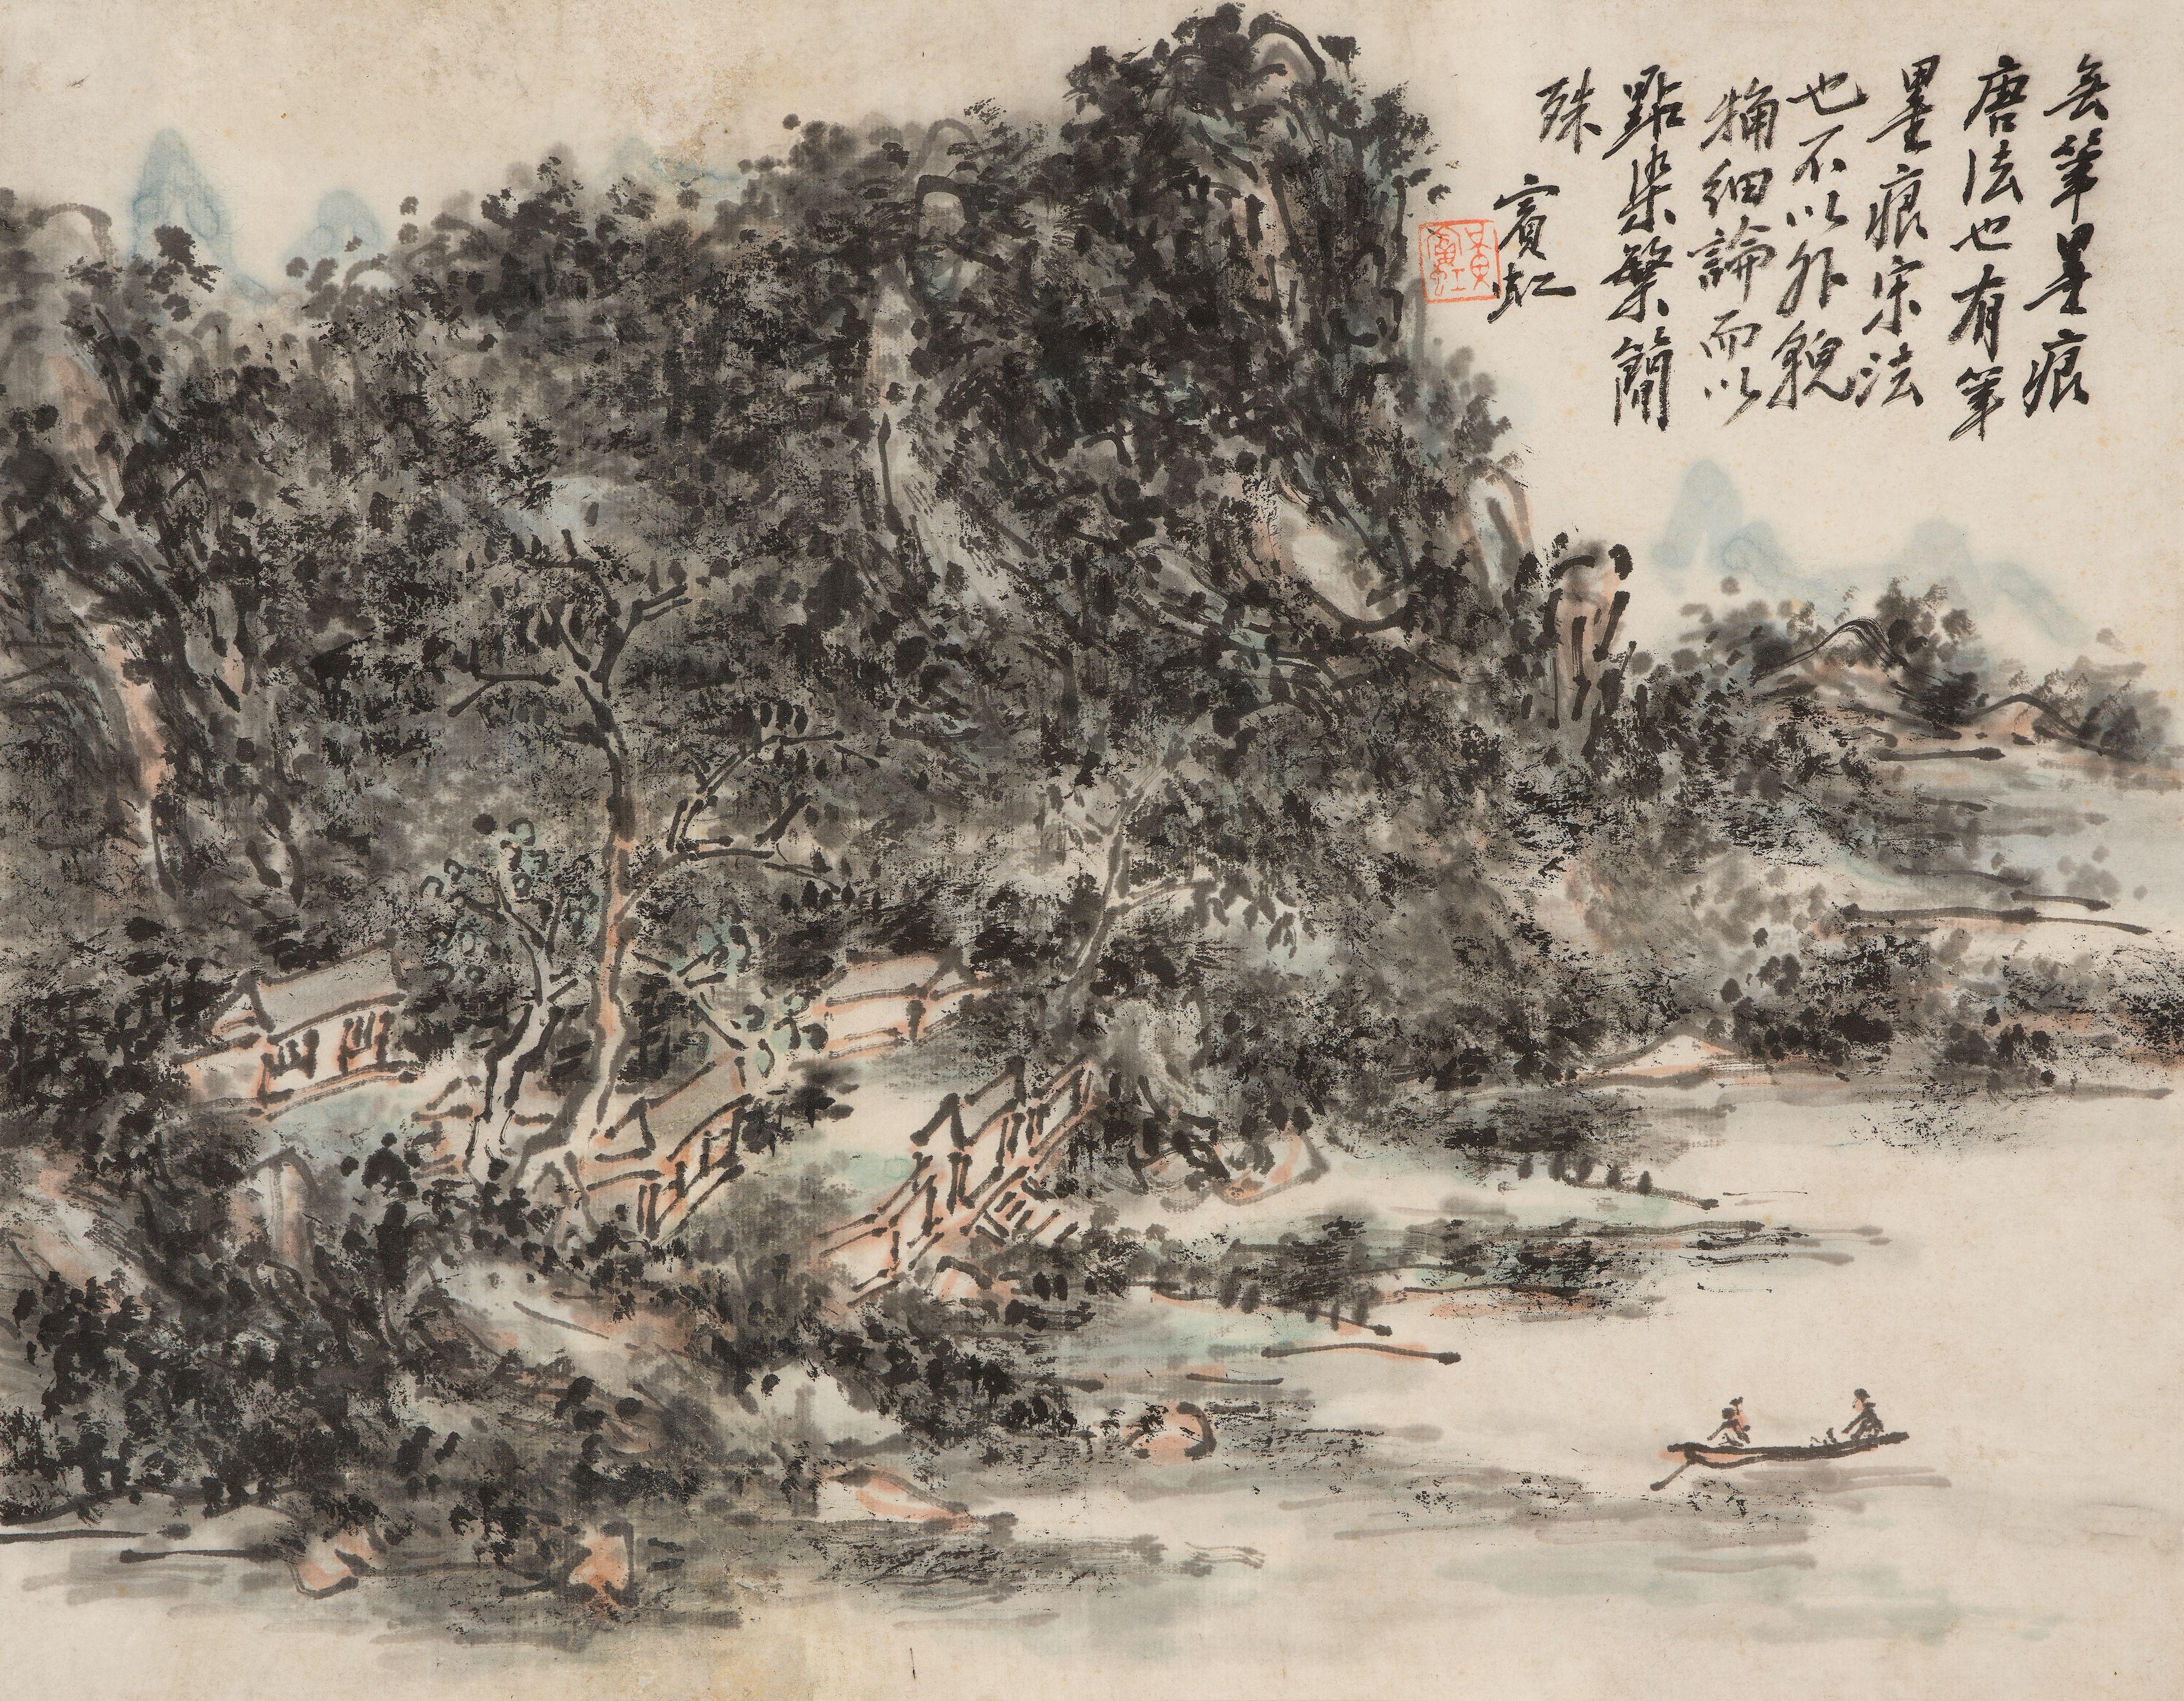 無筆墨痕
唐法也有筆
墨痕宋法
也不以外貌
觕細論而以
點染繁簡
殊
賓虹
黃賓虹